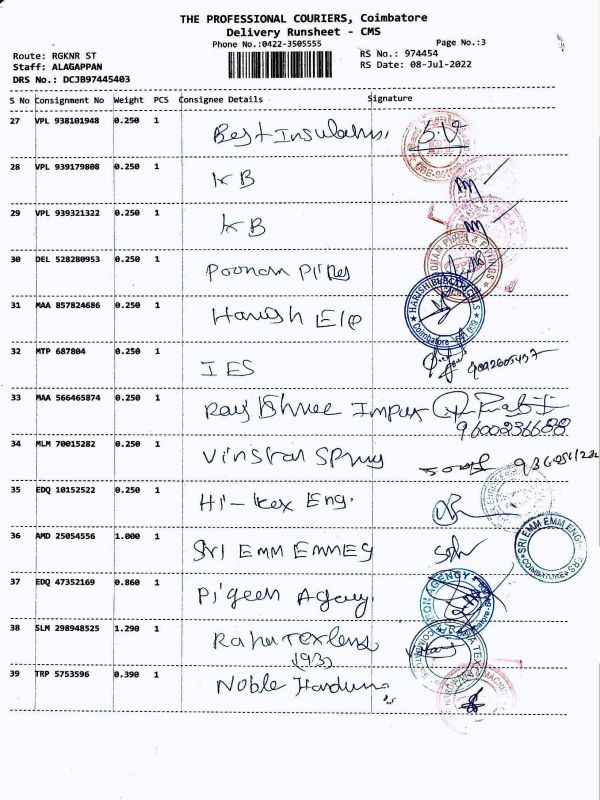 THE PROFESSIONAL COURIERS, Coimbatore
Delivery Runsheet - CMS
Phone No.:0422-3505555 Page No.:3
Route: RGKNR ST RS No.: 974454
Staff: ALAGAPPAN RS Date: 08-Jul-2022
DRS No.: DCJB97445403
S No Consignment No Weight PCS Consignee Details Signature
27 VPL 938101948 0.250 1
28 VPL 939179808 0.250 1 KB
29 VPL 939321322 0.250 1 KB
30 DEL 528280953 0.250 1 Poonam Pipes
31 MAA 857824686 0.250 1 Harish Ele
32 MTP 687804 0.250 1 IES
33 MAA 566465874 0.250 1 Raj Shree Impex
9600236688
34 MLM 70015282 0.250 1
35 EDQ 10152522 0.250 1 Hi-Rex Eng.
36 AMD 25054556 1.000 1 Sri EMM EMM EG
SRI EMM EMM ENGINEERS
COIMBATORE
37 EDQ 47352169 0.860 1 Pigeon Agency.
38 SLM 298948525 1.290 1
39 TRP 5753596 0.390 1 Noble Hardware